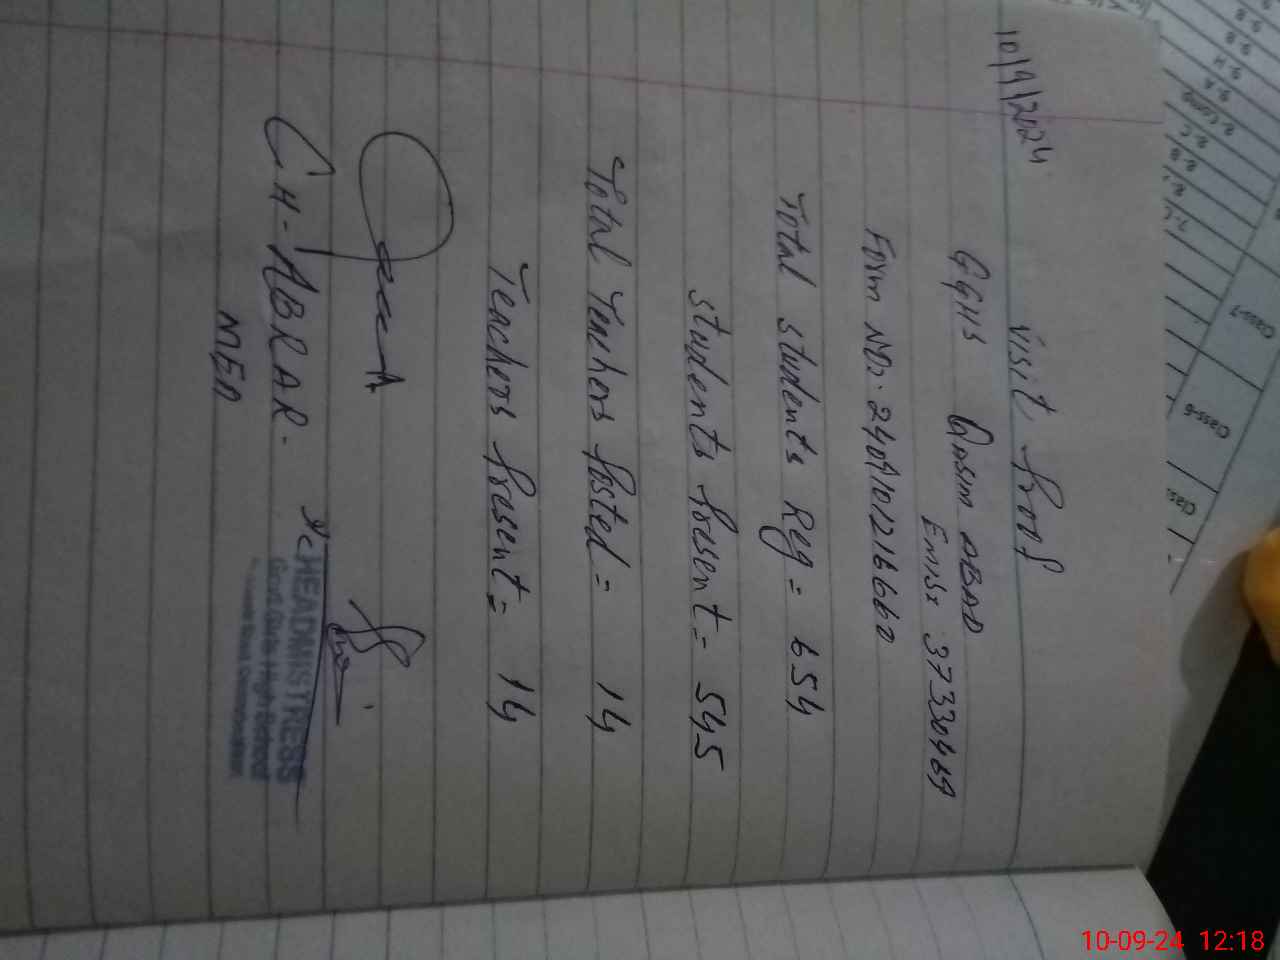 10/9/2024
Visit Proof
GGHS Qasim ABAD
Emis: 37330469
Form No:. 2409101216660
Total students Reg = 654
students Present = 545
Total Teachers Posted = 14
Teachers Present = 14
CH-ABRAR.
MEA
HEADMISTRESS
Govt. Girls High School
Class-7
Class-6
Clas
9.B
9.H
9.A
8.C
8.B
10-09-24 12:18